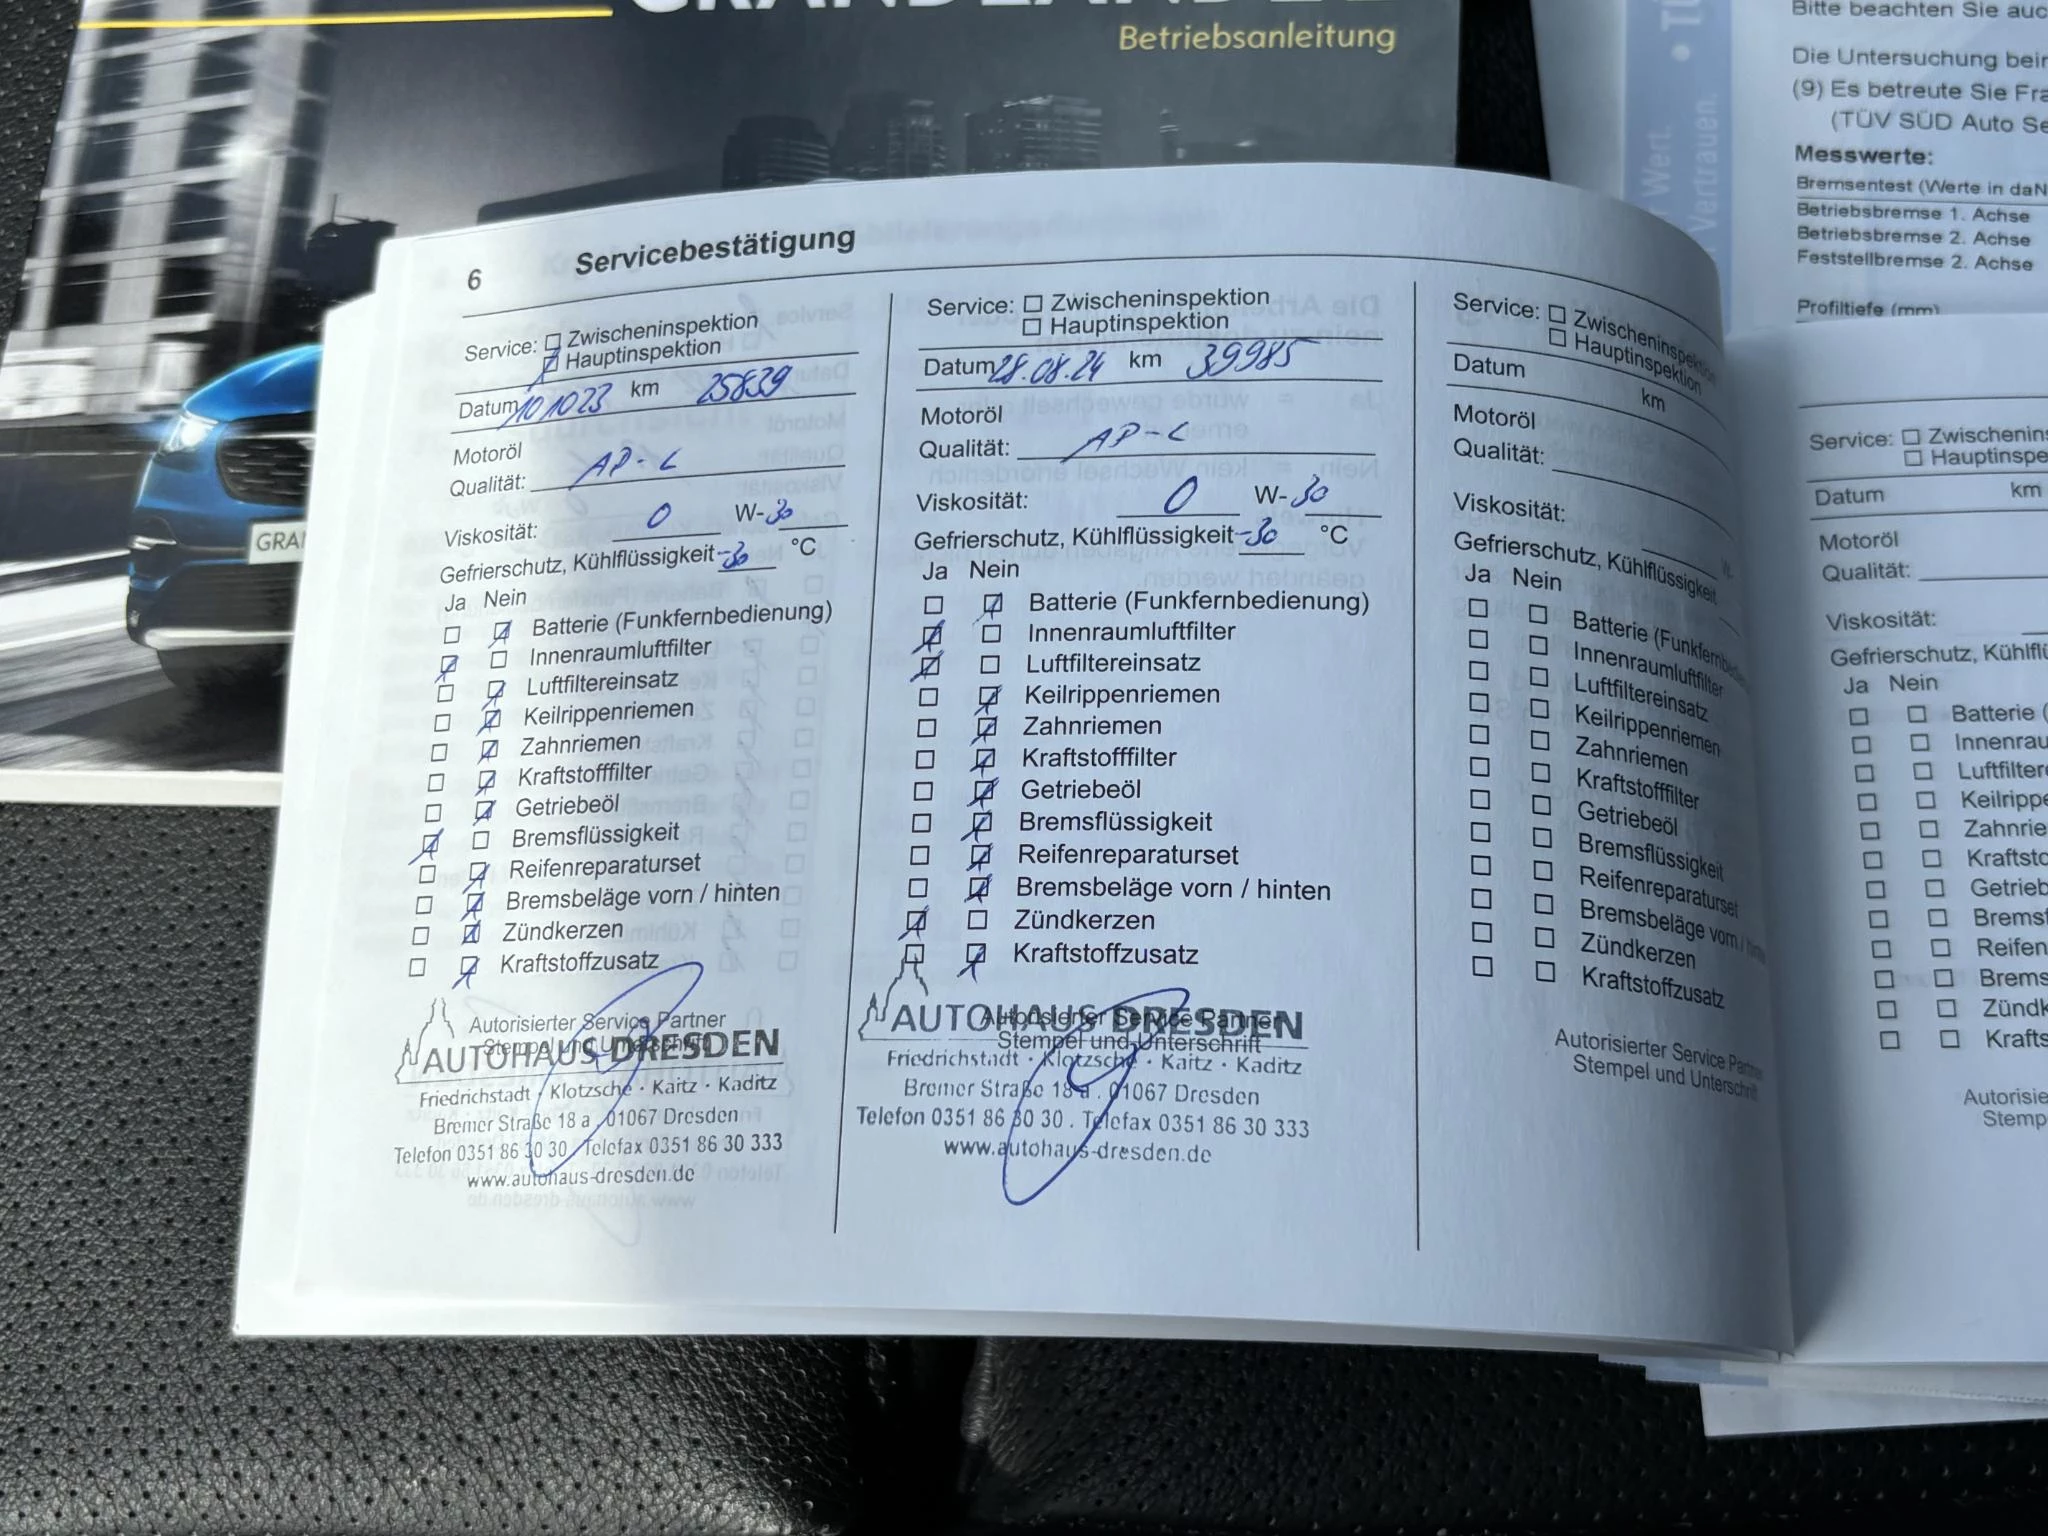 Betriebsanleitung
Bitte beachten Sie
Die Untersuchung
(9) Es betreute Sie
(TÜV SÜD Auto
Wert.
Vertrauen.
Messwerte:
Bremsentest (Werte in daN
Betriebsbremse 1. Achse
Betriebsbremse 2. Achse
Feststellbremse 2. Achse
Profiltiefe (mm)
6 Servicebestätigung
Service: Zwischeninspektion
Hauptinspektion
Datum 101023 km 25839
Motoröl
Qualität: AP-L
Viskosität: 0 W-30
Gefrierschutz, Kühlflüssigkeit -30 °C
Ja Nein
Batterie (Funkfernbedienung)
Innenraumluftfilter
Luftfiltereinsatz
Keilrippenriemen
Zahnriemen
Kraftstofffilter
Getriebeöl
Bremsflüssigkeit
Reifenreparaturset
Bremsbeläge vorn / hinten
Zündkerzen
Kraftstoffzusatz
Autorisierter Service Partner
Stempel und Unterschrift
AUTOHAUS DRESDEN
Friedrichstadt · Klotzsche · Kaitz · Kaditz
Bremer Straße 18 a . 01067 Dresden
Telefon 0351 86 30 30 . Telefax 0351 86 30 333
www.autohaus-dresden.de
Service: Zwischeninspektion
Hauptinspektion
Datum 28.08.24 km 39985
Motoröl
Qualität: AP-L
Viskosität: 0 W-30
Gefrierschutz, Kühlflüssigkeit -30 °C
Ja Nein
Batterie (Funkfernbedienung)
Innenraumluftfilter
Luftfiltereinsatz
Keilrippenriemen
Zahnriemen
Kraftstofffilter
Getriebeöl
Bremsflüssigkeit
Reifenreparaturset
Bremsbeläge vorn / hinten
Zündkerzen
Kraftstoffzusatz
Autorisierter Service Partner
Stempel und Unterschrift
AUTOHAUS DRESDEN
Friedrichstadt · Klotzsche · Kaitz · Kaditz
Bremer Straße 18 a . 01067 Dresden
Telefon 0351 86 30 30 . Telefax 0351 86 30 333
www.autohaus-dresden.de
Service: Zwischeninspektion
Hauptinspektion
Datum km
Motoröl
Qualität:
Viskosität: W-
Gefrierschutz, Kühlflüssigkeit
Ja Nein
Batterie (Funkfernbed
Innenraumluftfilter
Luftfiltereinsatz
Keilrippenriemen
Zahnriemen
Kraftstofffilter
Getriebeöl
Bremsflüssigkeit
Reifenreparaturset
Bremsbeläge vorn / hinten
Zündkerzen
Kraftstoffzusatz
Autorisierter Service Partner
Stempel und Unterschrift
Service: Zwischenins
Hauptinspe
Datum km
Motoröl
Qualität:
Viskosität:
Gefrierschutz, Kühlfl
Ja Nein
Batterie (
Innenrau
Luftfilter
Keilripp
Zahnrie
Kraftsto
Getrieb
Bremsf
Reifen
Brems
Zündk
Krafts
Autorisie
Stemp